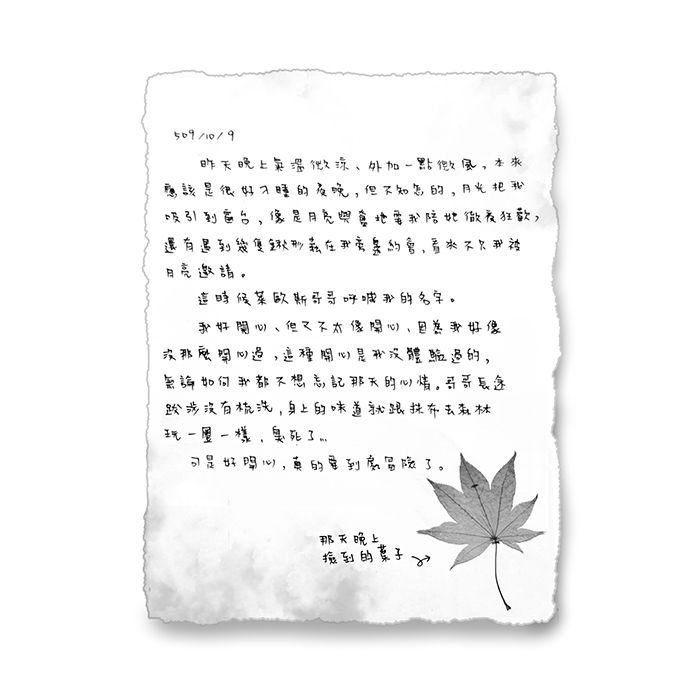 509/10/9
昨天晚上氣溫微涼、外加一點微風，本來
應該是很好才睡的夜晚，但不知怎的，月光把我
吸引到窗台，像是月亮與蟲地要我陪她徹夜狂歡，
還有遇到幾隻鍬形蟲在我旁邊約會，看來不只我被
月亮邀請。
這時候萊歐斯哥哥呼喊我的名字。
我好開心、但又不太像開心、因為我好像
沒那麼開心過，這種開心是我沒體驗過的，
無論如何我都不想忘記那天的心情。哥哥長途
跋涉沒有梳洗，身上的味道就跟抹布去森林
玩一圈一樣，臭死了...
可是好開心，真的要到處冒險了。
那天晚上
撿到的葉子